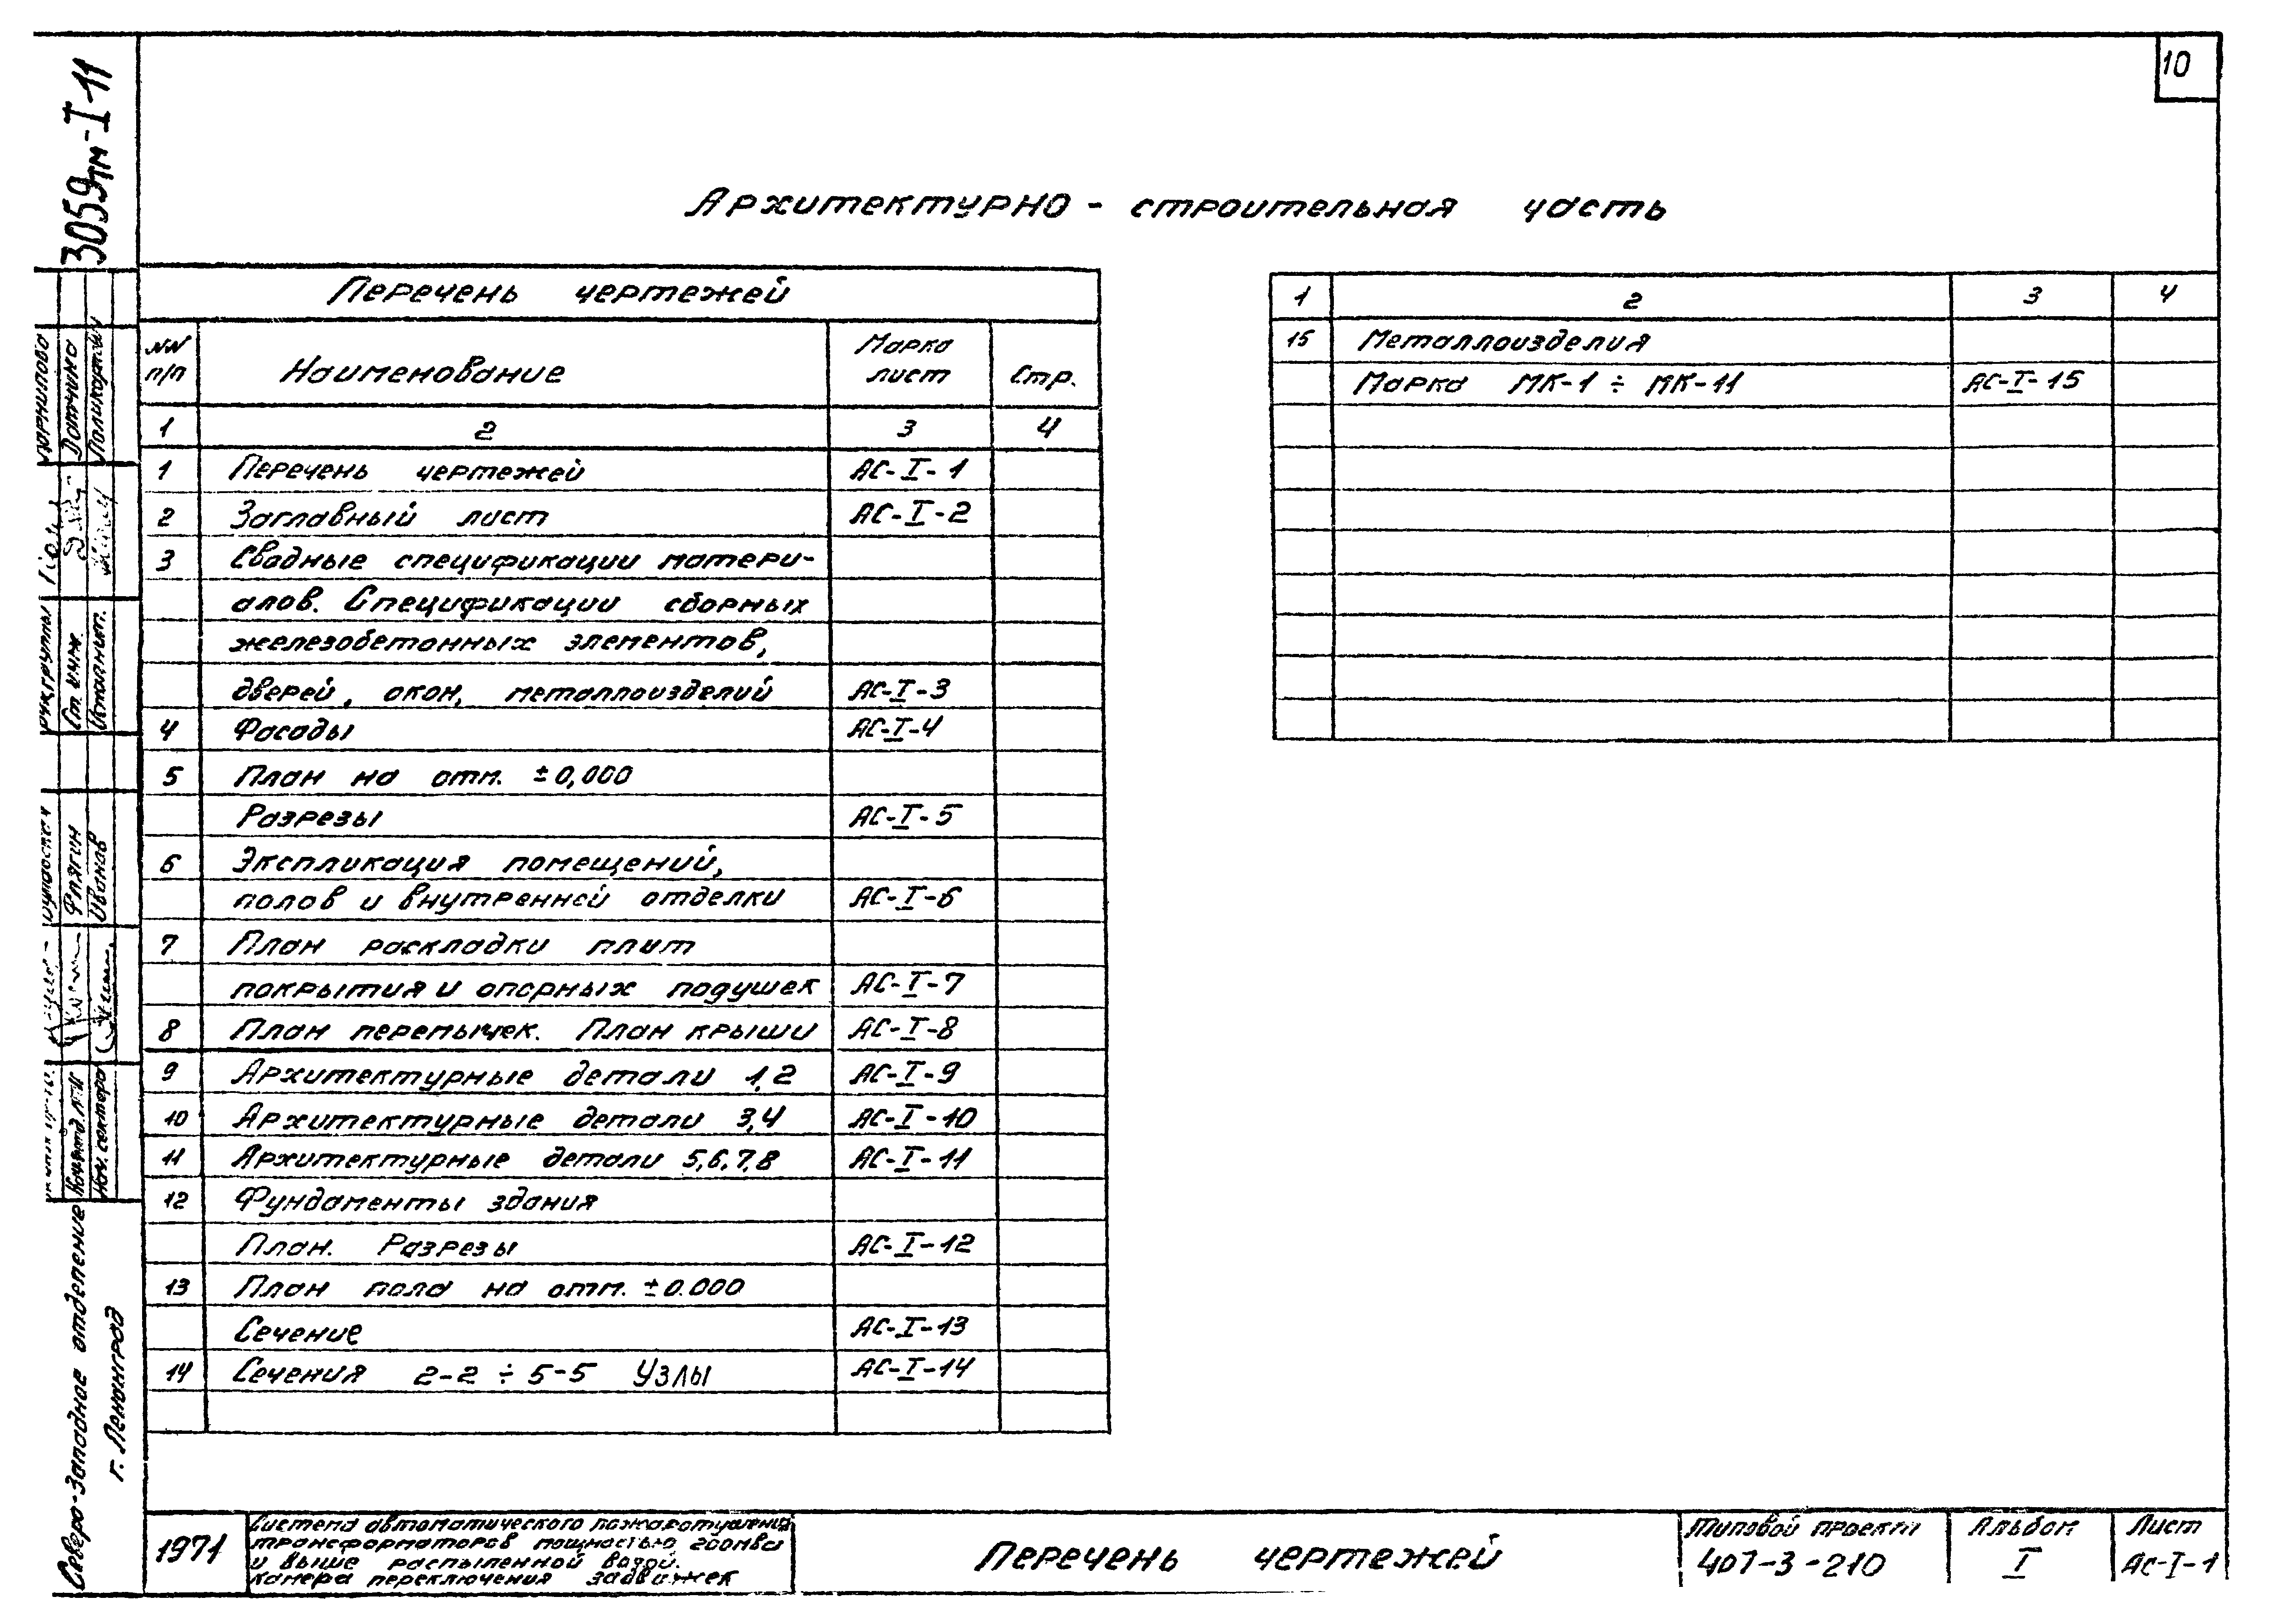 10
3059тм-I-11
Архитектурно - строительная часть
Перечень чертежей
NN п/п Наименование Марка лист Стр.
1 2 3 4
1 Перечень чертежей АС-I-1
2 Заглавный лист АС-I-2
3 Сводные спецификации матери-
алов. Спецификации сборных
железобетонных элементов,
дверей, окон, металлоизделий АС-I-3
4 Фасады АС-I-4
5 План на отм. ±0,000
Разрезы АС-I-5
6 Экспликация помещений,
полов и внутренней отделки АС-I-6
7 План раскладки плит
покрытия и опорных подушек АС-I-7
8 План перемычек. План крыши АС-I-8
9 Архитектурные детали 1,2 АС-I-9
10 Архитектурные детали 3,4 АС-I-10
11 Архитектурные детали 5,6,7,8 АС-I-11
12 Фундаменты здания
План. Разрезы АС-I-12
13 План пола на отм. ±0.000
Сечение АС-I-13
14 Сечения 2-2 ÷ 5-5 Узлы АС-I-14
1 2 3 4
15 Металлоизделия
Марка МК-1 ÷ МК-11 АС-I-15
рук.группы
Ст. инж.
Исполнит.
Флягин
Иванов
Нач. сектора
Северо-Западное отделение
г. Ленинград
1971
Система автоматического пожаротушения
трансформаторов мощностью 200мва
и выше распыленной водой.
Камера переключения задвижек
Перечень чертежей
Типовой проект
407-3-210
Альбом
I
Лист
АС-I-1